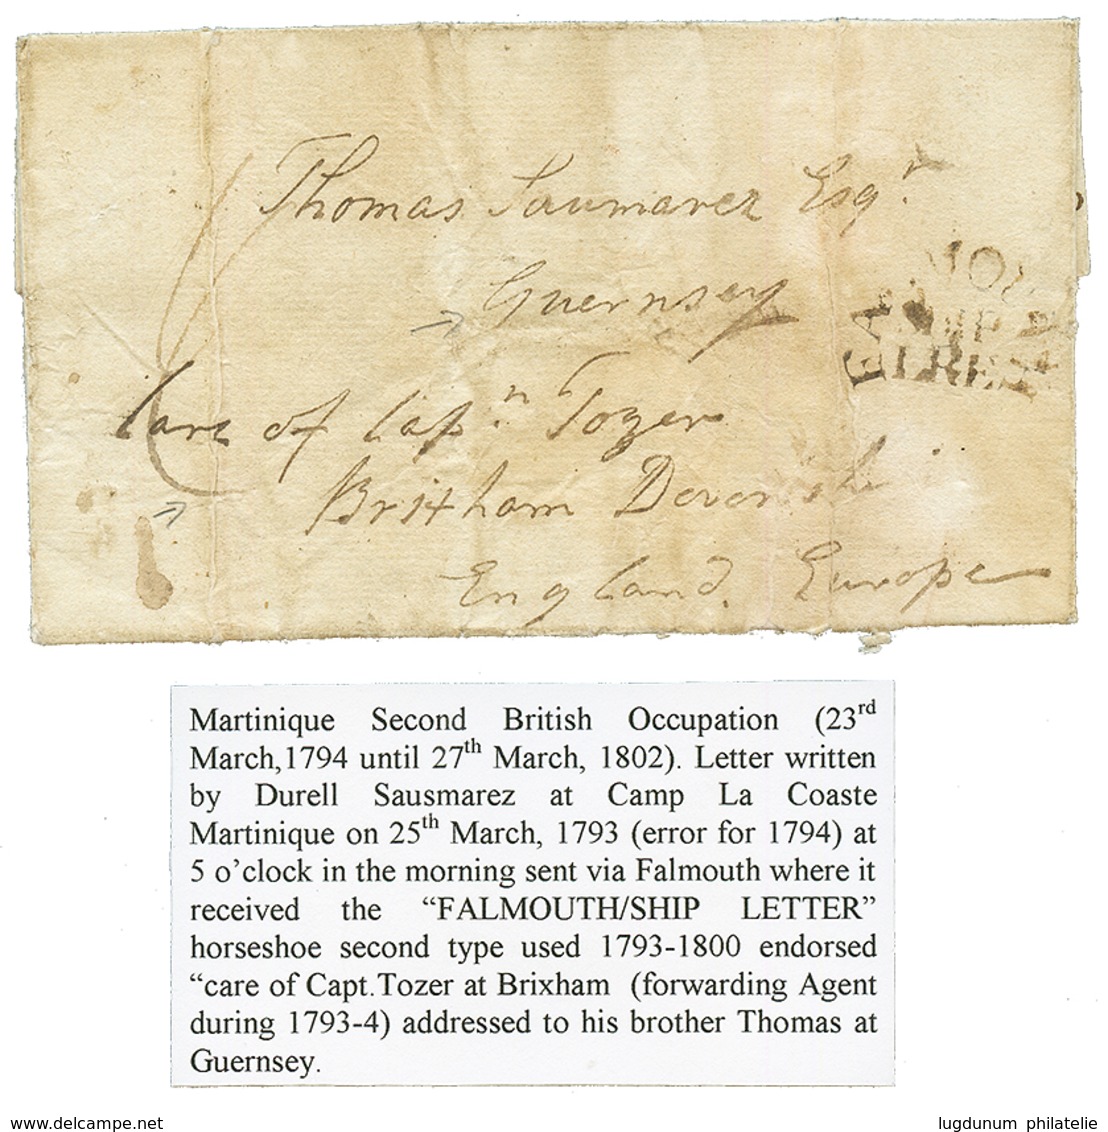 Thomas Saumarez Esqr.
Guernsey
Care of Capn. Tozer
Brixham
England. Europe
Martinique Second British Occupation (23rd
March,1794 until 27th March, 1802). Letter written
by Durell Sausmarez at Camp La Coaste
Martinique on 25th March, 1793 (error for 1794) at
5 o’clock in the morning sent via Falmouth where it
received the “FALMOUTH/SHIP LETTER”
horseshoe second type used 1793-1800 endorsed
“care of Capt.Tozer at Brixham (forwarding Agent
during 1793-4) addressed to his brother Thomas at
Guernsey.
www.delcampe.net
lugdunum philatelie